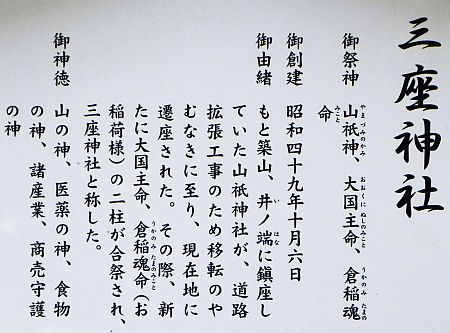 三座神社
御祭神　山祇神、大国主命、倉稲魂
命
御創建　昭和四十九年十月六日
御由緒　もと築山、井ノ端に鎮座し
ていた山祇神社が、道路
拡張工事のため移転のや
むなきに至り、現在地に
遷座された。その際、新
たに大国主命、倉稲魂命（お
稲荷様）の二柱が合祭され、
三座神社と称した。
御神徳　山の神、医薬の神、食物
の神、諸産業、商売守護
の神